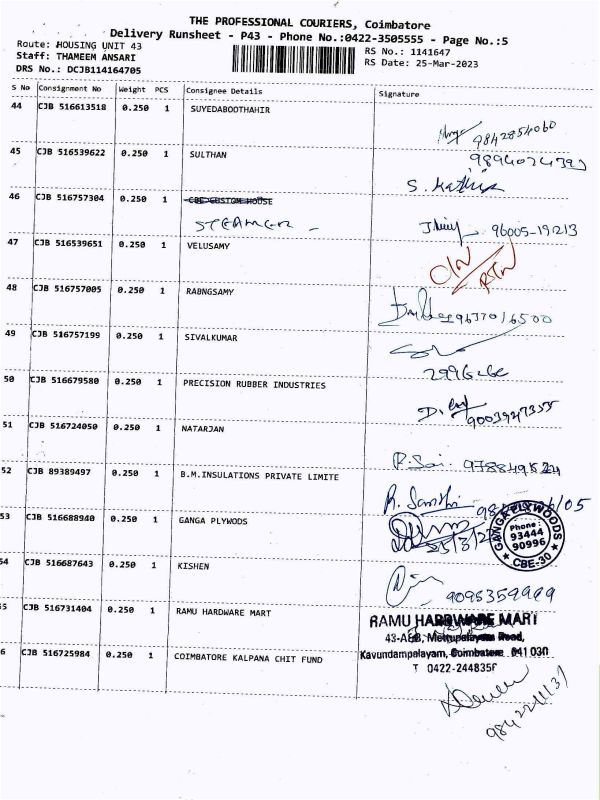 THE PROFESSIONAL COURIERS, Coimbatore
Delivery Runsheet - P43 - Phone No.:0422-3505555 - Page No.:5
Route: HOUSING UNIT 43
Staff: THAMEEM ANSARI
DRS No.: DCJB114164705
RS No.: 1141647
RS Date: 25-Mar-2023
S No Consignment No Weight PCS Consignee Details Signature
44 CJB 516613518 0.250 1 SUYEDABOOTHAHIR
9842854060
45 CJB 516539622 0.250 1 SULTHAN
S. Kathija
46 CJB 516757304 0.250 1 CBE CUSTOM HOUSE
STEAMER 96005-19213
47 CJB 516539651 0.250 1 VELUSAMY
48 CJB 516757005 0.250 1 RABNGSAMY
9637016500
49 CJB 516757199 0.250 1 SIVALKUMAR
50 CJB 516679580 0.250 1 PRECISION RUBBER INDUSTRIES
9003947355
51 CJB 516724050 0.250 1 NATARJAN
P. Sai.
52 CJB 89389497 0.250 1 B.M.INSULATIONS PRIVATE LIMITE
53 CJB 516688940 0.250 1 GANGA PLYWODS
25/3/23
GANGA PLYWOODS
Phone :
93444
90996
CBE-30
54 CJB 516687643 0.250 1 KISHEN
9095359999
55 CJB 516731404 0.250 1 RAMU HARDWARE MART
RAMU HARDWARE MART
43-A&B, Mettupalayam Road,
Kavundampalayam, Coimbatore 641 030
6 CJB 516725984 0.250 1 COIMBATORE KALPANA CHIT FUND
T 0422-244835